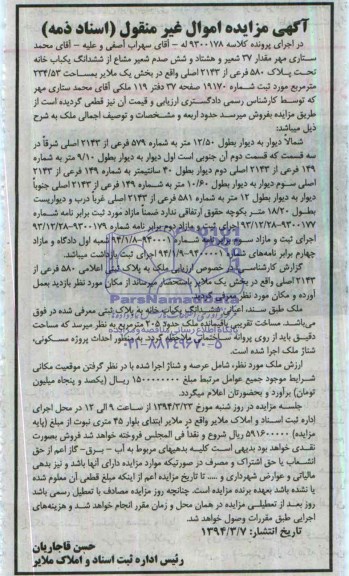 آگهی مزایده اموال غیر منقول (اسناد ذمه)
در اجرای پرونده کلاسه ۹۳۰۰۱۷۸ له - آقای سهراب آصفی و علیه - آقای محمد
ستاری مهر مقدار ۳۷ شعیر و هشتاد و شش صدم شعیر مشاع از ششدانگ یکباب خانه
تحت پلاک ۵۸۰ فرعی از ۲۱۴۳ اصلی واقع در بخش یک ملایر بمساحت ۲۳۴/۵۳
مترمربع مورد ثبت شماره ۱۹۱۷۰ صفحه ۳۷ دفتر ۱۱۹ ملکی آقای محمد ستاری مهر
که توسط کارشناس رسمی دادگستری ارزیابی و قیمت آن نیز قطعی گردیده است از
طریق مزایده بفروش میرسد حدود اربعه و مشخصات و توصیف اجمالی ملک به شرح
ذیل میباشد:
شمالاً دیوار به دیوار بطول ۱۲/۵۰ متر به شماره ۵۷۹ فرعی از ۲۱۴۳ اصلی شرقاً در
سه قسمت که قسمت دوم آن جنوبی است اول دیوار به دیوار بطول ۹/۱۰ متر به شماره
۱۴۹ فرعی از ۲۱۴۳ اصلی دوم دیوار بطول ۴۰ سانتیمتر به شماره ۱۴۹ فرعی از ۲۱۴۳
اصلی سوم دیوار به دیوار بطول ۱۰/۶۰ متر به شماره ۱۴۹ فرعی از ۲۱۴۳ اصلی جنوباً
دیوار به دیوار بطول ۱۲ متر به شماره ۵۸۱ فرعی از ۲۱۴۳ اصلی غرباً درب و دیواریست
بطول ۱۸/۲۰ متر بکوچه حقوق ارتفاقی ندارد ضمناً مازاد مورد ثبت برابر نامه شماره
۹۳۰۰۱۷۷-۹۳/۱۲/۲۸ اجرای ثبت و مازاد دوم برابر نامه شماره ۹۳۰۰۱۷۹-۹۳/۱۲/۲۸
اجرای ثبت و مازاد سوم برابر نامه شماره ۹۴۰۰۰۱-۹۴/۱/۸ شعبه اول دادگاه و مازاد
چهارم برابر نامه‌های شماره ۹۴۰۰۰۱-۹۴/۱/۹ اجرای ثبت بازداشت میباشد.
گزارش کارشناس در خصوص ارزیابی ملک به پلاک ثبتی اعلامی ۵۸۰ فرعی از
۲۱۴۳ اصلی واقع در بخش یک ملایر باستحضار میرساند از مکان مورد نظر بازدید بعمل
آورده و مکان مورد نظر
ملک طبق سند اعلامی ششدانگ یکباب خانه به پلاک ثبتی معرفی شده در فوق
می‌باشد. مساحت تقریبی ملک حدود ۲۰۵ مترمربع به نظر میرسد که مساحت
دقیق باید از روی پروانه ساختمانی به منظور احداث پروژه مسکونی،
شناژ ملک اجرا شده است.
ارزش ملک مورد نظر، شامل عرصه و شناژ اجرا شده با در نظر گرفتن موقعیت مکانی
شرایط موجود جمیع عوامل مرتبط مبلغ ۱۵۰۰۰۰۰۰۰۰ ریال (یکصد و پنجاه میلیون
تومان) برآورد و بحضورتان اعلام میگردد.
جلسه مزایده در روز شنبه مورخ ۱۳۹۴/۳/۲۳ از ساعت ۹ الی ۱۲ در محل اجرای
اداره ثبت اسناد و املاک ملایر واقع در ملایر ابتدای بلوار ۴۵ متری نبوت از مبلغ (پایه
مزایده) ۵۹۱۶۰۰۰۰۰ ریال شروع و نقداً فی المجلس فروخته خواهد شد فروش بصورت
نقدی خواهد بود بدیهی است کلیه بدهیهای مربوط به آب - برق - گاز اعم از حق
انشعاب یا حق اشتراک و مصرف در صورتیکه مورد مزایده دارای آنها باشد و نیز بدهی
مالیاتی و عوارض شهرداری و .... تا تاریخ مزایده اعم از اینکه مبلغ قطعی آن معلوم شده
یا نشده باشد بعهده برنده مزایده است. چنانچه روز مزایده مصادف با تعطیل رسمی باشد
روز بعد از تعطیلی مزایده در همان محل و زمان مقرر انجام خواهد شد و هزینه‌های
اجرایی طبق مقررات وصول خواهد شد.
تاریخ انتشار: ۱۳۹۴/۳/۷
حسن قاجاریان
رئیس اداره ثبت اسناد و املاک ملایر
ParsNamadData
۰۲۱-۸۸۳۴۹۶۷۰-۵